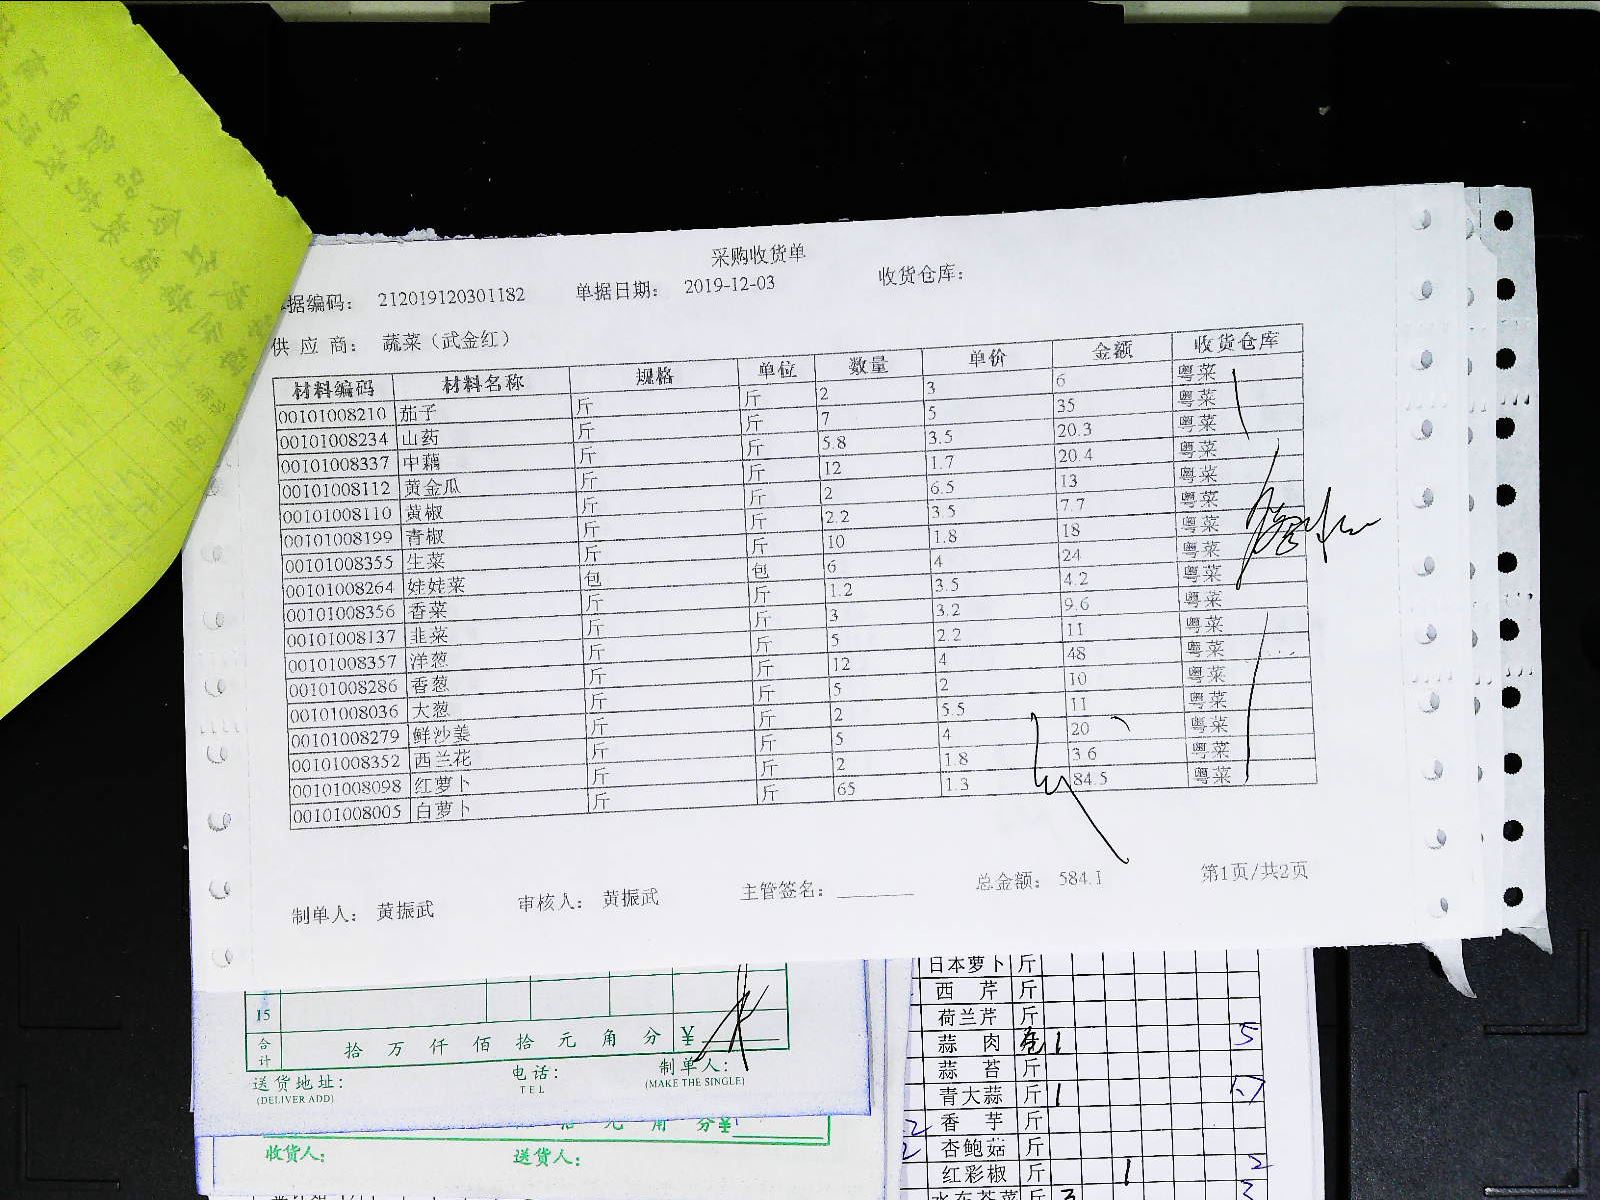 采购收货单
据编码： 212019120301182 单据日期： 2019-12-03 收货仓库：
供 应 商： 蔬菜（武金红）
材料编码 材料名称 规格 单位 数量 单价 金额 收货仓库
00101008210 茄子 斤 斤 2 3 6 粤菜
00101008234 山药 斤 斤 7 5 35 粤菜
00101008337 中藕 斤 斤 5.8 3.5 20.3 粤菜
00101008112 黄金瓜 斤 斤 12 1.7 20.4 粤菜
00101008110 黄椒 斤 斤 2 6.5 13 粤菜
00101008199 青椒 斤 斤 2.2 3.5 7.7 粤菜
00101008355 生菜 斤 斤 10 1.8 18 粤菜
00101008264 娃娃菜 包 包 6 4 24 粤菜
00101008356 香菜 斤 斤 1.2 3.5 4.2 粤菜
00101008137 韭菜 斤 斤 3 3.2 9.6 粤菜
00101008357 洋葱 斤 斤 5 2.2 11 粤菜
00101008286 香葱 斤 斤 12 4 48 粤菜
00101008036 大葱 斤 斤 5 2 10 粤菜
00101008279 鲜沙姜 斤 斤 2 5.5 11 粤菜
00101008352 西兰花 斤 斤 5 4 20 粤菜
00101008098 红萝卜 斤 斤 2 1.8 3.6 粤菜
00101008005 白萝卜 斤 斤 65 1.3 84.5 粤菜
制单人： 黄振武 审核人： 黄振武 主管签名： 总金额： 584.1 第1页/共2页
15
合计 拾 万 仟 佰 拾 元 角 分 ¥
送货地址： 电话： 制单人：
(DELIVER ADD) TEL (MAKE THE SINGLE)
分¥
收货人： 送货人：
日本萝卜 斤
西 芹 斤
荷兰芹 斤
蒜 肉 1 5
蒜 苔 斤
青大蒜 斤 1
香 芋 斤
杏鲍菇 斤
红彩椒 斤 1 2